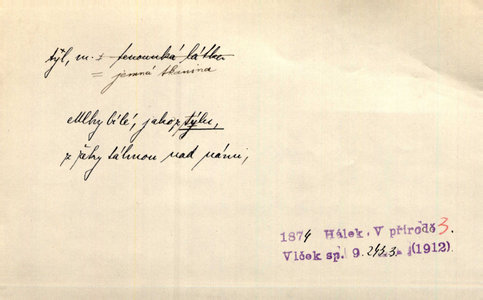 týl, m. = tenounká látka
= jemná tkanina
Mlhy bílé, jako z týlu,
z řeky táhnou nad námi,
1874 Hálek. V přírodě 3.
Vlček sp. 9. 243. (1912).